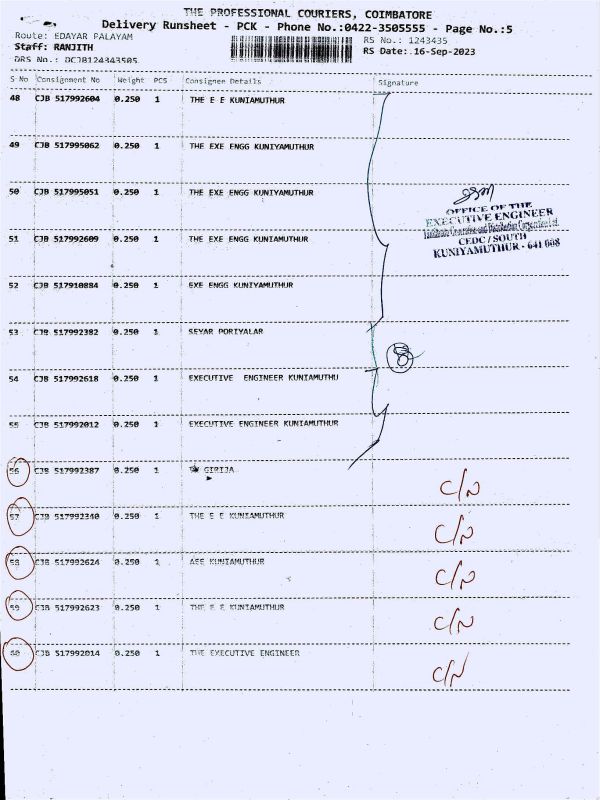 THE PROFESSIONAL COURIERS, COIMBATORE
Delivery Runsheet - PCK - Phone No.:0422-3505555 - Page No.:5
Route: EDAYAR PALAYAM
RS No.: 1243435
Staff: RANJITH
RS Date: 16-Sep-2023
DRS No.: DCJB124343505
S No Consignment No Weight PCS Consignee Details Signature
48 CJB 517992604 0.250 1 THE E E KUNIAMUTHUR
49 CJB 517995062 0.250 1 THE EXE ENGG KUNIYAMUTHUR
50 CJB 517995051 0.250 1 THE EXE ENGG KUNIYAMUTHUR
OFFICE OF THE
EXECUTIVE ENGINEER
Tamilnadu Generation and Distribution Corporation Ltd.
CEDC / SOUTH
KUNIYAMUTHUR - 641 008
51 CJB 517992609 0.250 1 THE EXE ENGG KUNIAMUTHUR
52 CJB 517910884 0.250 1 EXE ENGG KUNIYAMUTHUR
53 CJB 517992382 0.250 1 SEYAR PORIYALAR
8
54 CJB 517992618 0.250 1 EXECUTIVE ENGINEER KUNIAMUTHU
55 CJB 517992012 0.250 1 EXECUTIVE ENGINEER KUNIAMUTHUR
56 CJB 517992387 0.250 1 GIRIJA C/N
57 CJB 517992340 0.250 1 THE E E KUNIAMUTHUR C/N
58 CJB 517992624 0.250 1 AEE KUNIAMUTHUR C/N
59 CJB 517992623 0.250 1 THE E E KUNIAMUTHUR C/N
60 CJB 517992014 0.250 1 THE EXECUTIVE ENGINEER C/N